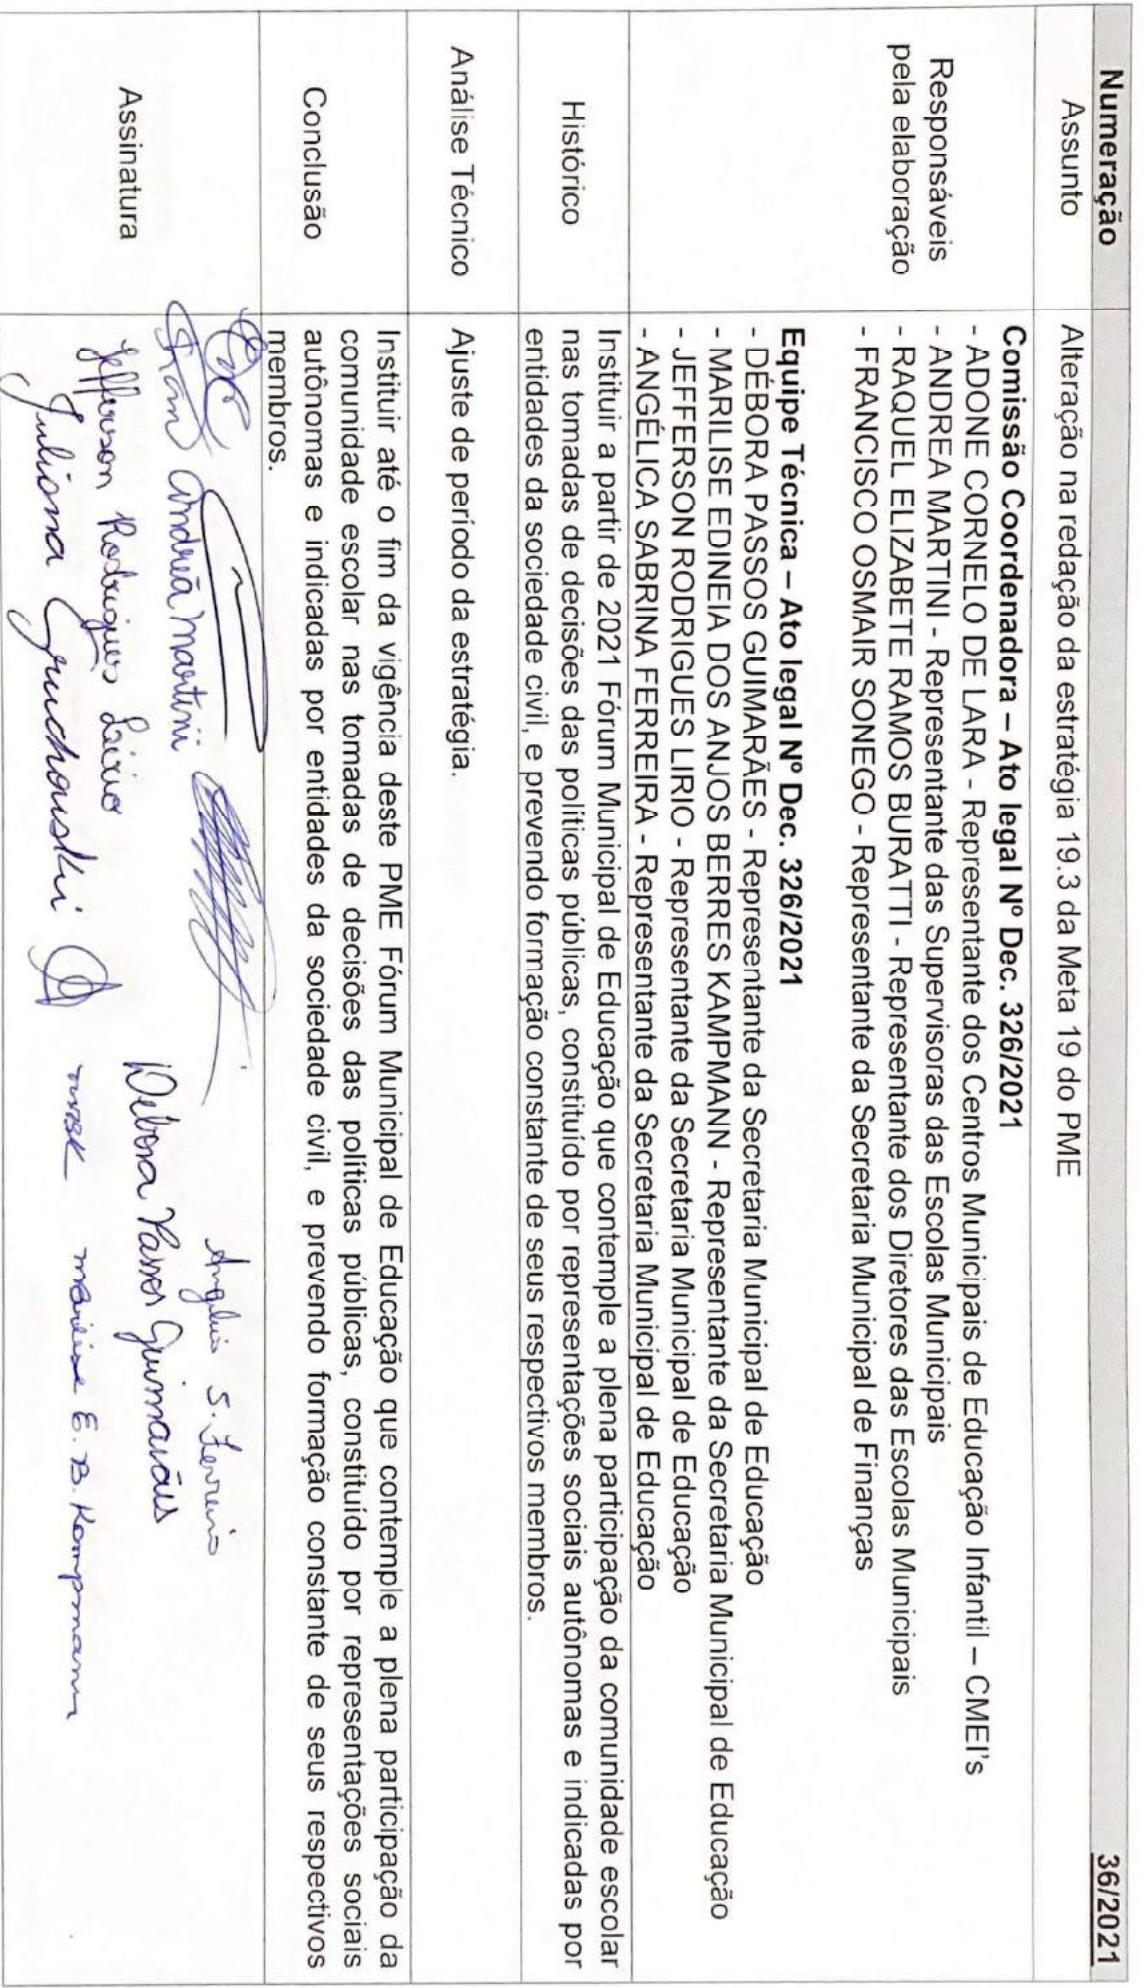 Numeração 36/2021
Assunto Alteração na redação da estratégia 19.3 da Meta 19 do PME
Responsáveis pela elaboração
Comissão Coordenadora – Ato legal Nº Dec. 326/2021
- ADONE CORNELO DE LARA - Representante dos Centros Municipais de Educação Infantil – CMEI's
- ANDREA MARTINI - Representante das Supervisoras das Escolas Municipais
- RAQUEL ELIZABETE RAMOS BURATTI - Representante dos Diretores das Escolas Municipais
- FRANCISCO OSMAIR SONEGO - Representante da Secretaria Municipal de Finanças
Equipe Técnica – Ato legal Nº Dec. 326/2021
- DÉBORA PASSOS GUIMARÃES - Representante da Secretaria Municipal de Educação
- MARILISE EDINEIA DOS ANJOS BERRES KAMPMANN - Representante da Secretaria Municipal de Educação
- JEFFERSON RODRIGUES LIRIO - Representante da Secretaria Municipal de Educação
- ANGÉLICA SABRINA FERREIRA - Representante da Secretaria Municipal de Educação
Histórico
Instituir a partir de 2021 Fórum Municipal de Educação que contemple a plena participação da comunidade escolar
nas tomadas de decisões das políticas públicas, constituído por representações sociais autônomas e indicadas por
entidades da sociedade civil, e prevendo formação constante de seus respectivos membros.
Análise Técnico Ajuste de período da estratégia.
Conclusão
Instituir até o fim da vigência deste PME Fórum Municipal de Educação que contemple a plena participação da
comunidade escolar nas tomadas de decisões das políticas públicas, constituído por representações sociais
autônomas e indicadas por entidades da sociedade civil, e prevendo formação constante de seus respectivos
membros.
Assinatura
Angélica S. Ferreira
Andréa Martini Debora Passos Guimarães
Jefferson Rodrigues Lirio
Juliana Marilise E. B. Kampmann